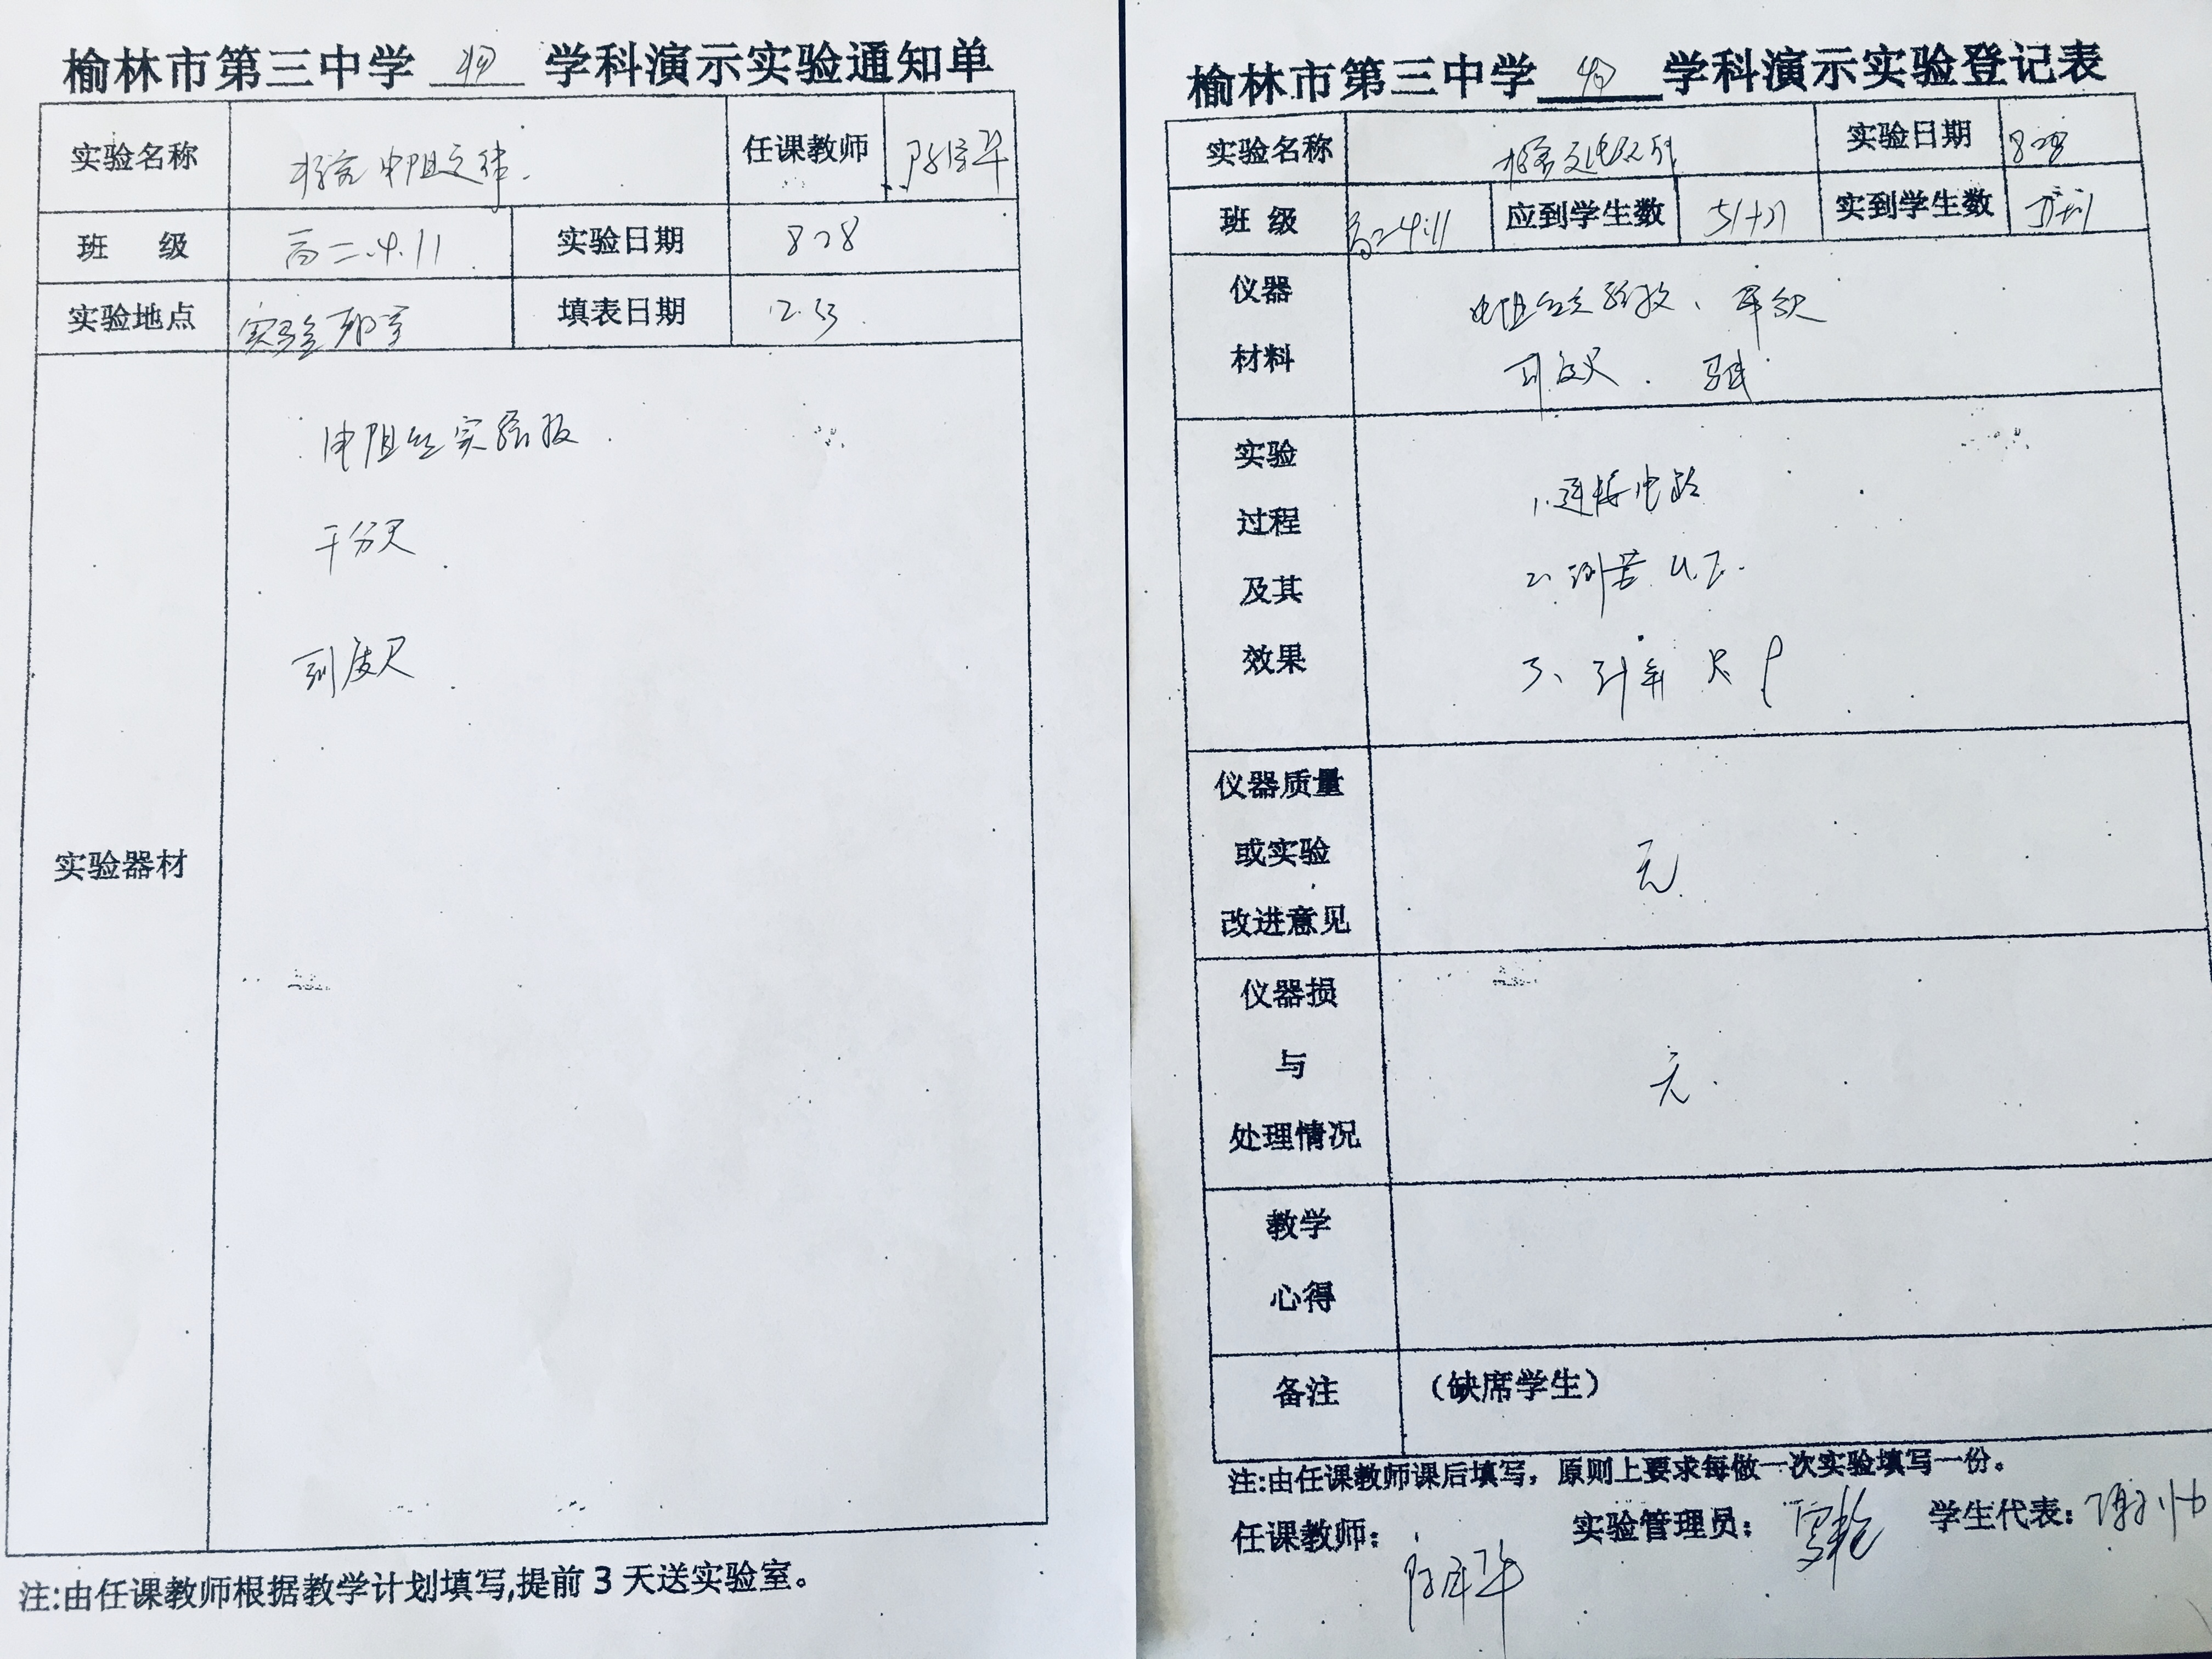 榆林市第三中学 物 学科演示实验通知单
实验名称 探究电阻定律. 任课教师
班 级 高二.4.11 实验日期 828
实验地点 实验室 填表日期
实验器材
电阻丝实验板.
千分尺
刻度尺
注:由任课教师根据教学计划填写,提前3天送实验室。
榆林市第三中学 物 学科演示实验登记表
实验名称 实验日期 828
班 级 高二4.11 应到学生数 51+51 实到学生数
仪器材料 电阻丝实验板、
刻度尺.
实验过程及其效果
1.连接电路
2. U.I.
3、计算 R ρ
仪器质量或实验改进意见 无
仪器损与处理情况 无.
教学心得
备注 （缺席学生）
注:由任课教师课后填写，原则上要求每做一次实验填写一份。
任课教师: 实验管理员: 学生代表: